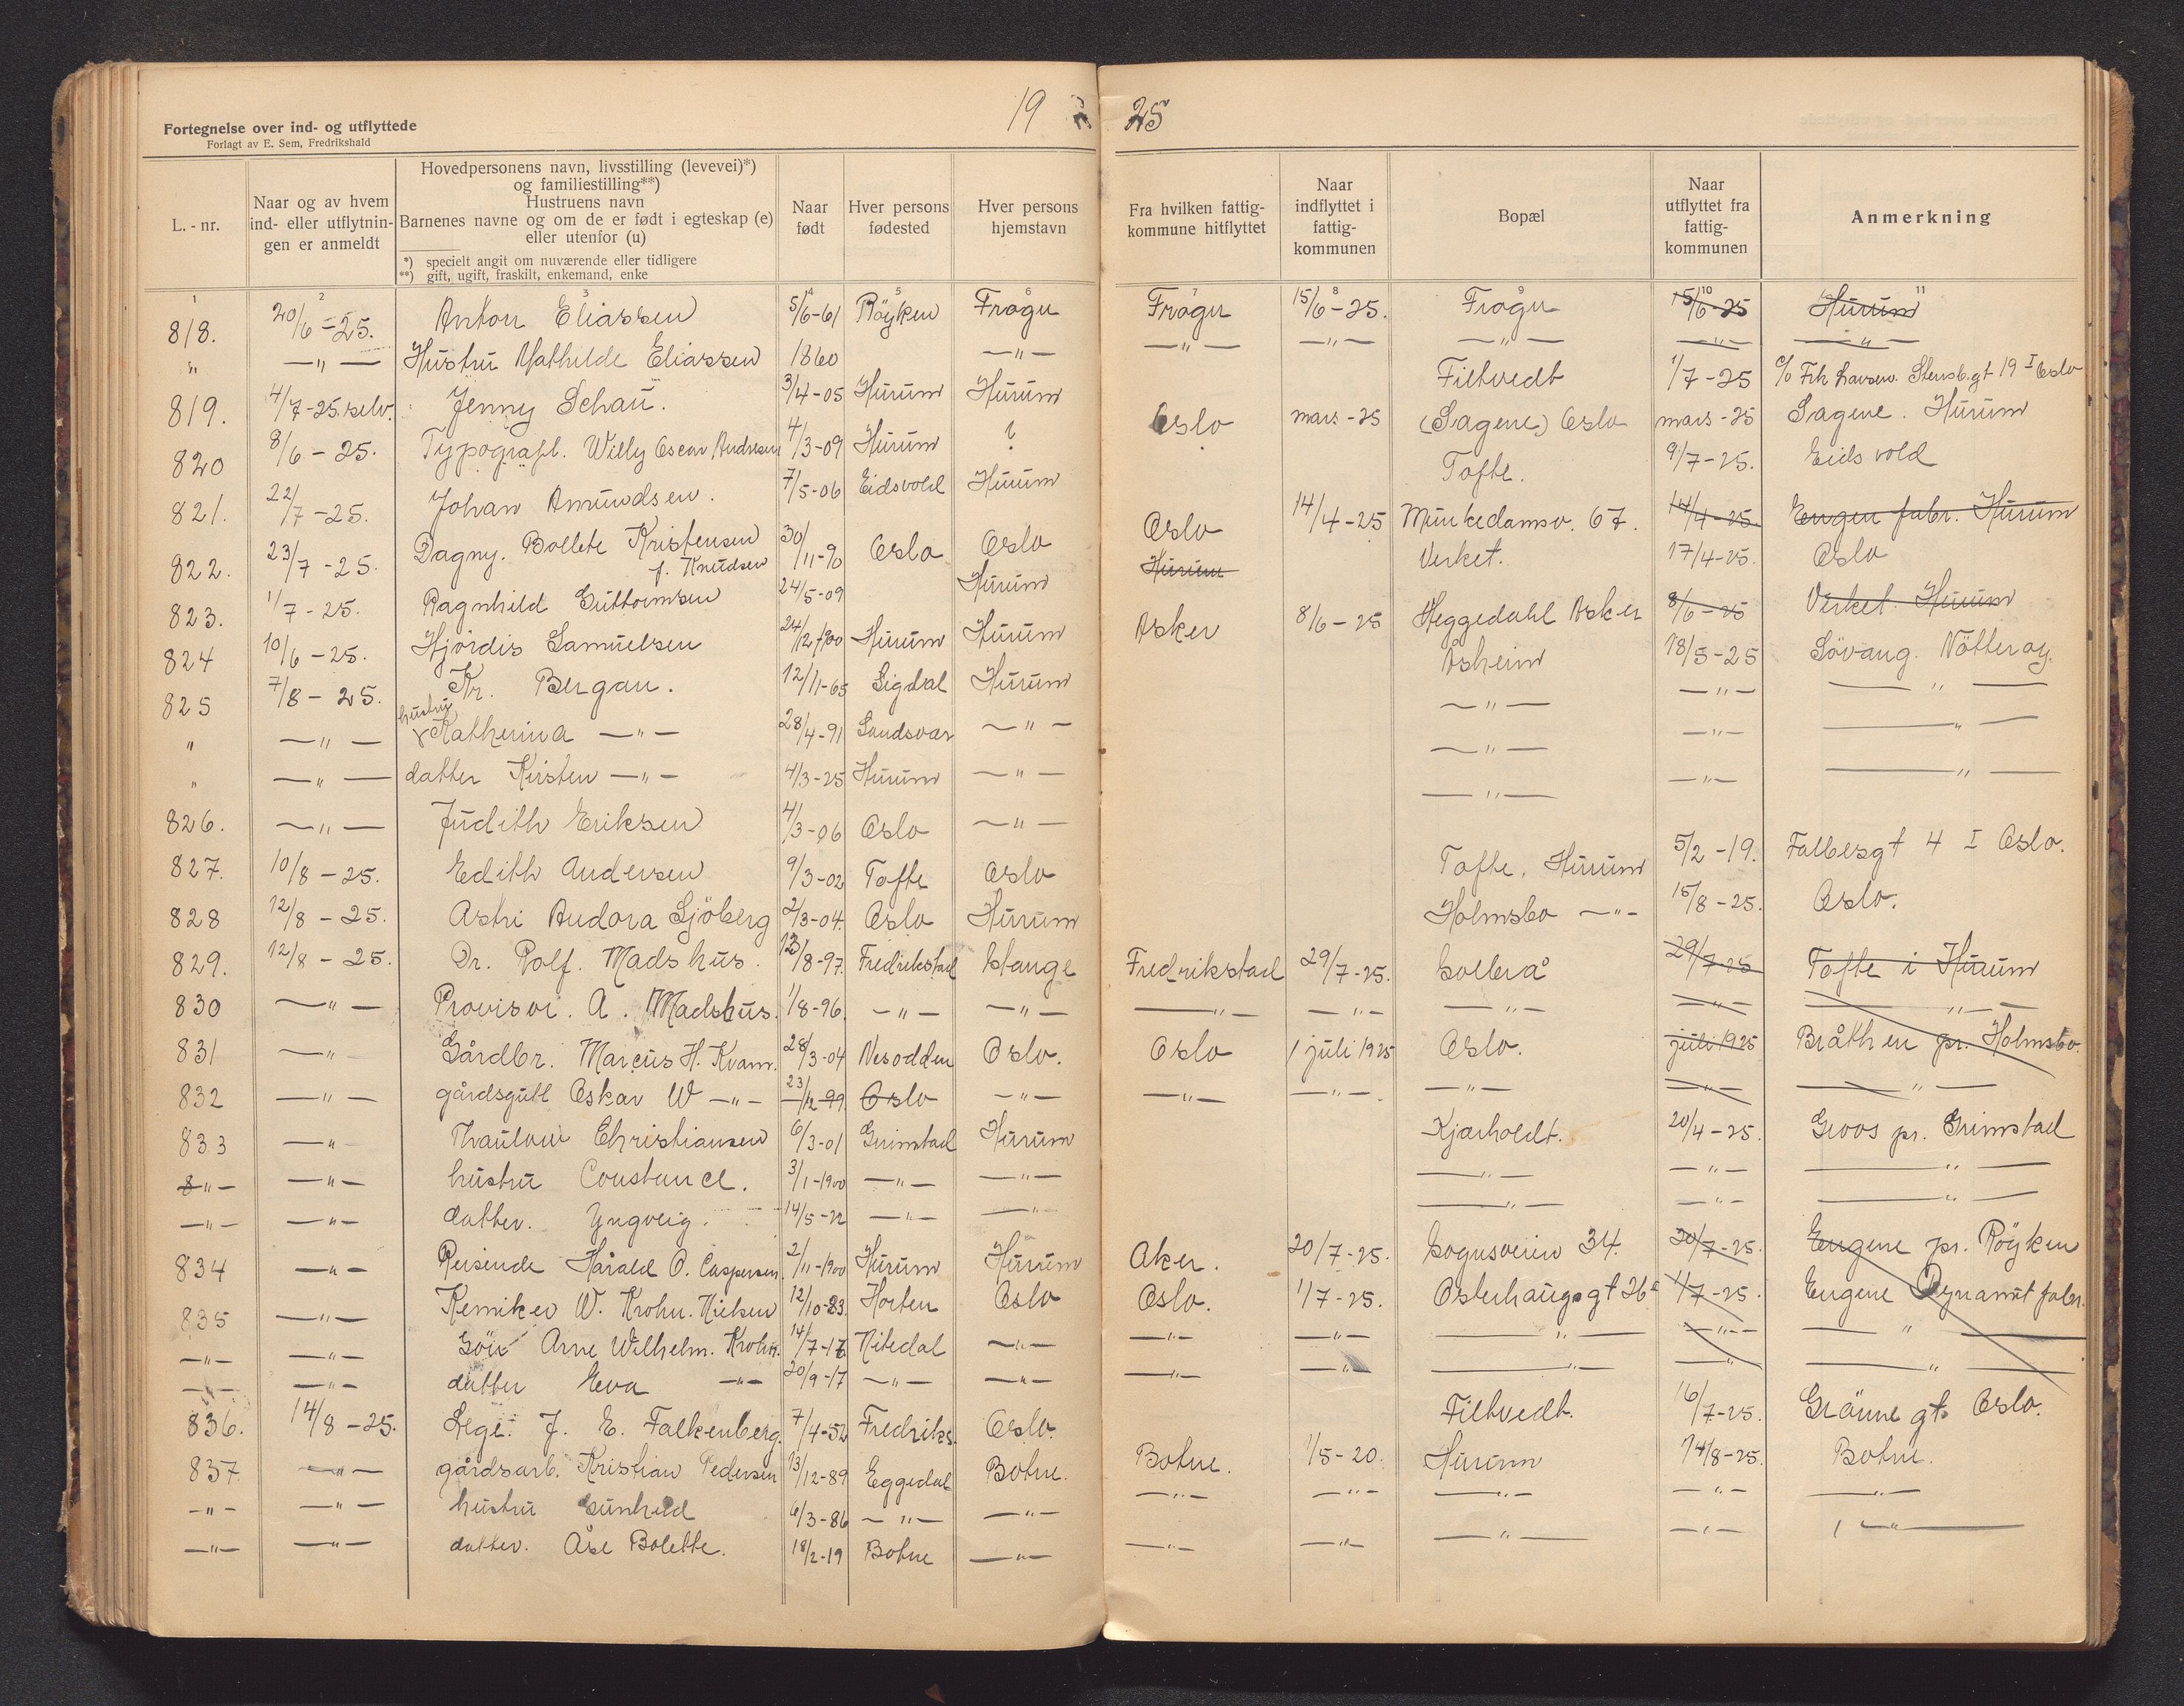 Fortegnelse over ind- og utflyttede
Forlagt av E. Sem, Fredrikshald
19 25
L. - nr.
Naar og av hvem ind- eller utflytnin-gen er anmeldt
Hovedpersonens navn, livsstilling (levevei)*)
og familiestilling**)
Hustruens navn
Barnenes navne og om de er født i egteskap (e)
eller utenfor (u)
*) specielt angit om nuværende eller tidligere
**) gift, ugift, fraskilt, enkemand, enke
Naar født
Hver persons fødested
Hver persons hjemstavn
Fra hvilken fattig-kommune hitflyttet
Naar indflyttet i fattig-kommunen
Bopæl
Naar utflyttet fra fattig-kommunen
Anmerkning
1 2 3 4 5 6 7 8 9 10 11
818. 20/6-25. Anton Eliassen 5/6-61 Röyken Frogn Frogn 15/6-25. Frogn 15/6-25 Hurum
" —"— Hustru Mathilde Eliassen 1860 —"— —"— —"— —"— —"— —"—
819. 4/7-25. selv. Jenny Schau. 3/4-05 Hurum Hurum Filtvedt 1/7-25 c/o Frk Larsen. Stensb.gt 19 I Oslo
820 8/6-25. Typografl. Willy Oscar Andresen 4/3-09 Hurum ? Oslo mars-25 (Sagene) Oslo mars-25 Sagene. Hurum
821. 22/7-25. Johan Amundsen. 7/5-06 Eidsvold Hurum Tofte. 9/7-25. Eidsvold
822. 23/7-25. Dagny. Bollete Kristensen f. Knudsen 30/11-90 Oslo Oslo Oslo 14/4-25 Munkedamsv. 67. 14/4-25. Engen fabr. Hurum
823. 1/7-25. Ragnhild Guttormsen 24/5-09 Hurum Hurum Verket. 17/4-25. Oslo
824 10/6-25. Hjördis Samuelsen 24/12-1900 Hurum Hurum Asker 8/6-25 Heggedahl Asker 8/6-25 Verket. Hurum
825 7/8-25. Kr. Bergan. 12/11-65 Sigdal Hurum Åsheim 18/5-25 Lövang. Nötteröy.
" —"— hustru Katherina —"— 28/4-91 Sandsvær —"— —"— —"— —"—
" —"— datter Kirsten —"— 4/3-25 Hurum —"— —"— —"— —"—
826. —"— Judith Eriksen 4/3-06 Oslo —"— —"— —"— —"—
827. 10/8-25. Edith Andersen 9/3-02 Tofte Oslo Tofte, Hurum 5/2-19. Falbesgt 4 I Oslo.
828 12/8-25. Astri Andora Sjöberg 2/3-04. Oslo Hurum Holmsbo —"— 15/8-25. Oslo.
829. 12/8-25. Dr. Rolf. Madshus. 12/8-97. Fredrikstad Stange Fredrikstad 29/7-25. 29/7-25 Tofte i Hurum
830 —"— Provisor. A. Madshus. 1/8-96. —"— —"— —"— —"— —"— —"— —"—
831 —"— Gårdbr. Marcus H. Kvam. 28/3-04 Nesodden Oslo. Oslo 1 juli 1925 Oslo. juli 1925 Bråthen pr. Holmsbo.
832 —"— gårdsgutt Oskar W —"— 23/12-99. Oslo —"— —"— —"— —"— —"— —"—
833 —"— Thaulow Christiansen 6/3-01 Grimstad Hurum Kjærholdt. 20/4-25. Groos pr. Grimstad
—"— —"— hustru Constance. 3/1-1900 —"— —"— —"— —"— —"—
—"— —"— datter. Yngveig. 14/5-22 —"— —"— —"— —"— —"—
834 —"— Reisende Harald O. Caspersen. 2/11-1900 Hurum Hurum Aker. 20/7-25. Sognsveien 34. 20/7-25. Engene pr. Röyken
835 —"— Kemiker W. Krohn. Nielsen 12/10-83. Horten Oslo Oslo. 1/7-25. Osterhausgt 26 1/7-25. Engene Dynamit fabr.
—"— —"— Sön Arne Wilhelm. Krohn. 14/7-16 Nitedal —"— —"— —"— —"— —"— —"—
—"— —"— datter Eeva —"— 20/9-17 —"— —"— —"— —"— —"— —"— —"—
836. 14/8-25. Lege. J. E. Falkenberg. 7/4-52 Fredriks. Oslo. Filtvedt. 16/7-25. Grönne gt. Oslo.
837. —"— gårdsarb. Kristian Pedersen 13/12-89 Eggedal Botne. Botne. 1/5-20. Hurum 14/8-25. Botne.
—"— —"— hustru Gunhild 6/3-86 —"— —"— —"— —"— —"— —"— —"—
—"— —"— datter. Åse Bolette. 18/2-19 Botne —"— —"— —"— —"— —"— —"—